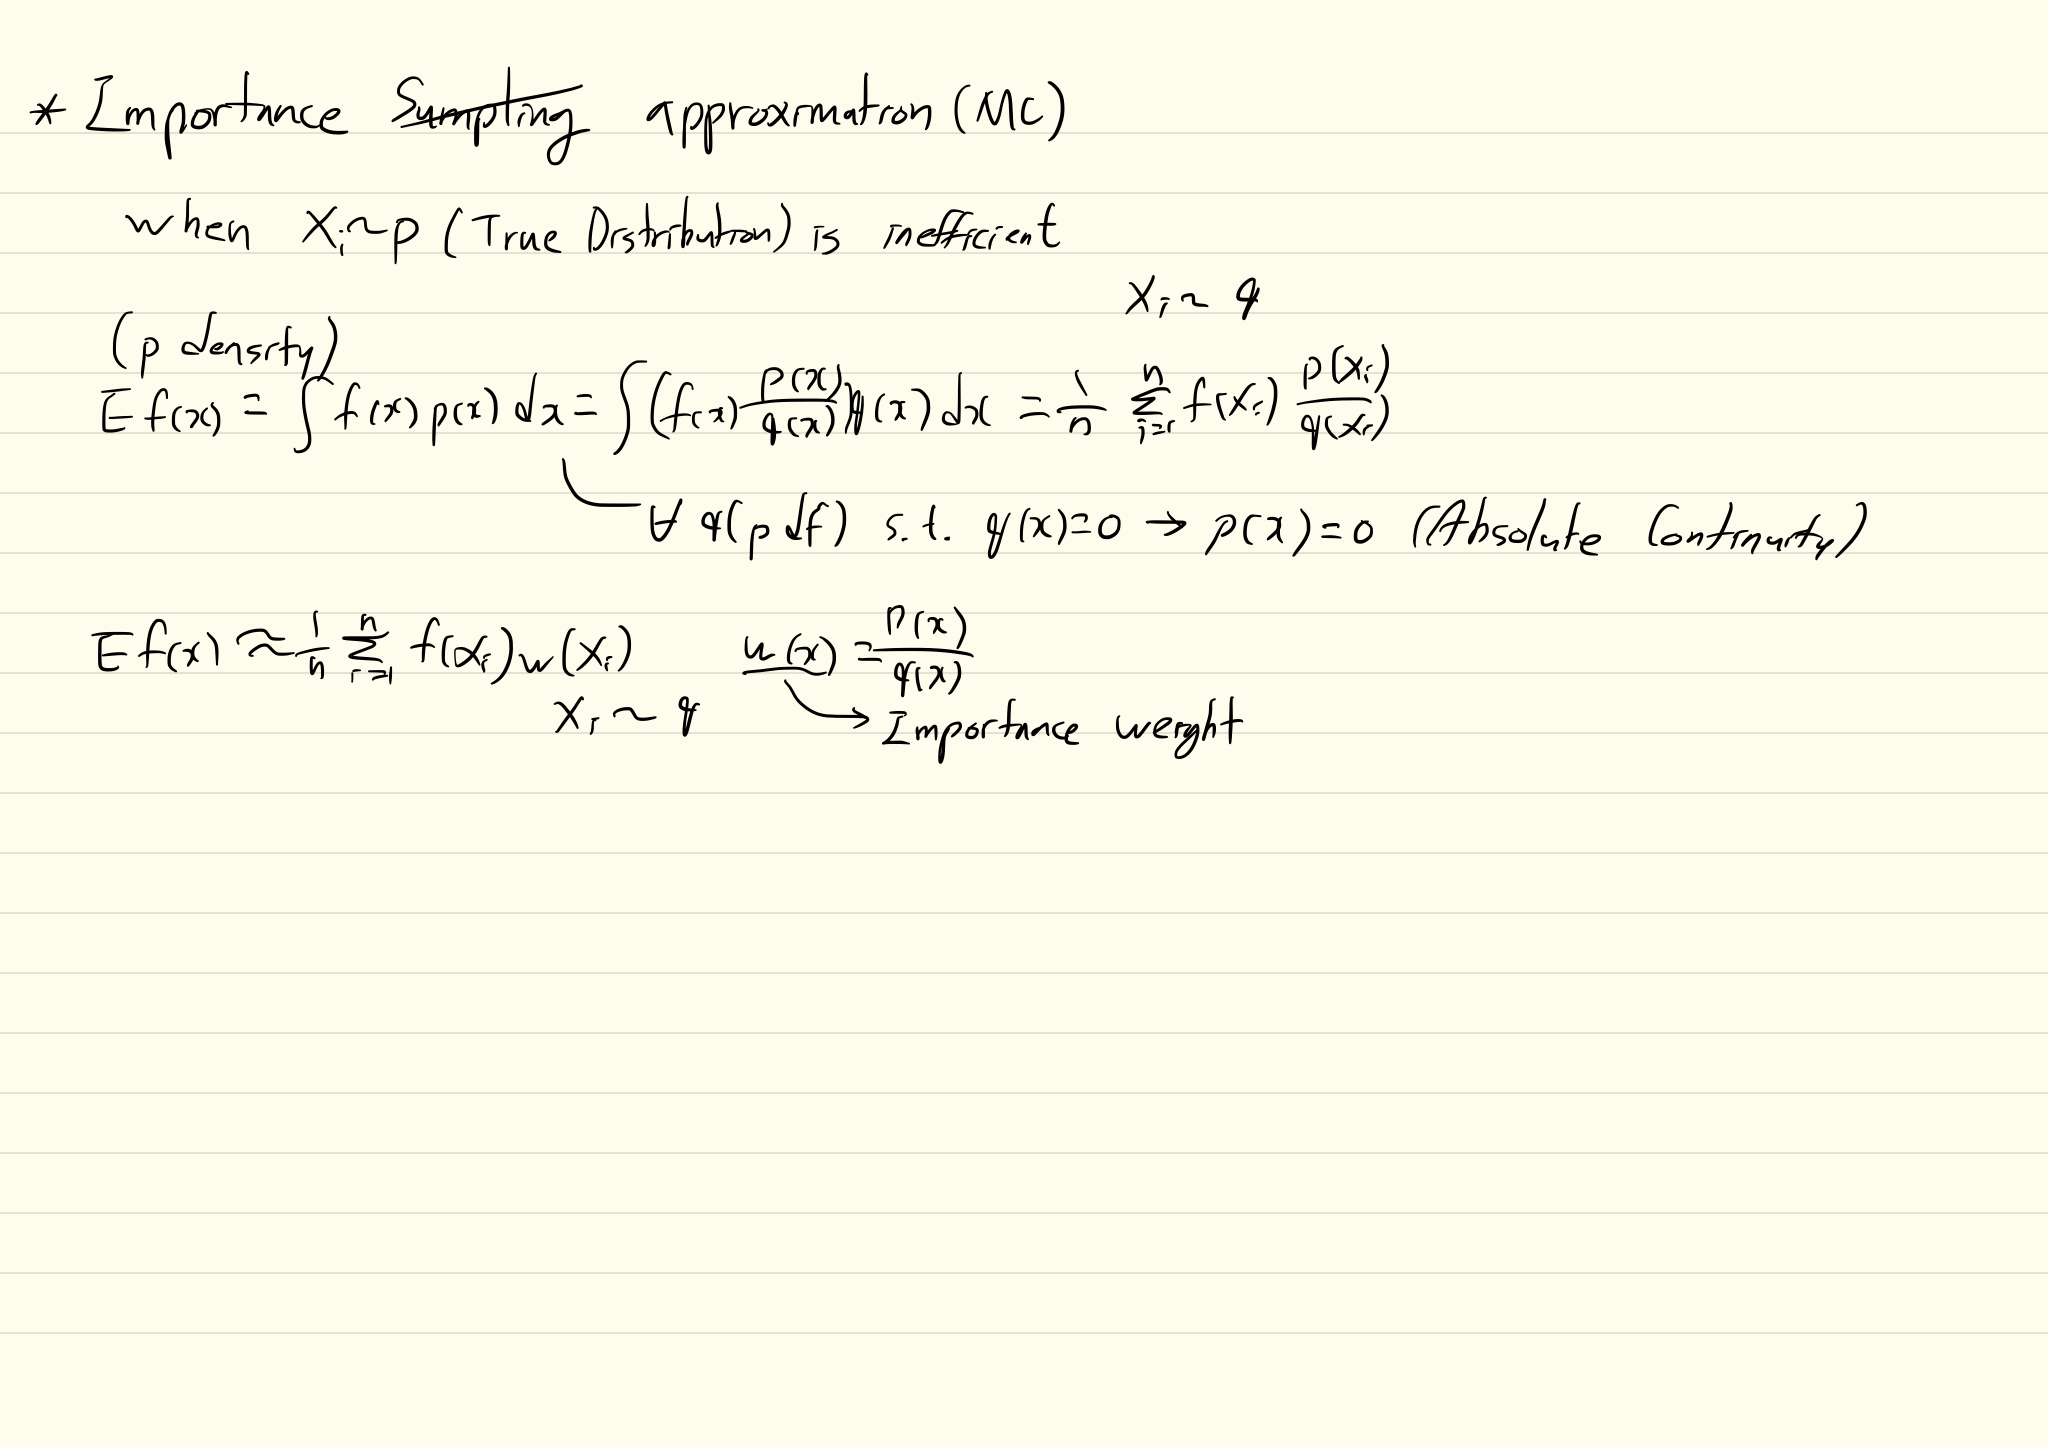 * Importance Sampling approximation (MC)
when Xᵢ ~ p (True Distribution) is inefficient
Xᵢ ~ q
(p density)
E f(x) = ∫ f(x) p(x) dx = ∫ (f(x) p(x)/q(x)) q(x) dx = 1/n Σᵢ₌₁ⁿ f(Xᵢ) p(Xᵢ)/q(Xᵢ)
∀ q(pdf) s.t. q(x)=0 → p(x)=0 (Absolute Continuity)
E f(x) ≈ 1/n Σᵢ₌₁ⁿ f(xᵢ) w(Xᵢ) w(x) = p(x)/q(x)
Xᵢ ~ q → Importance weight